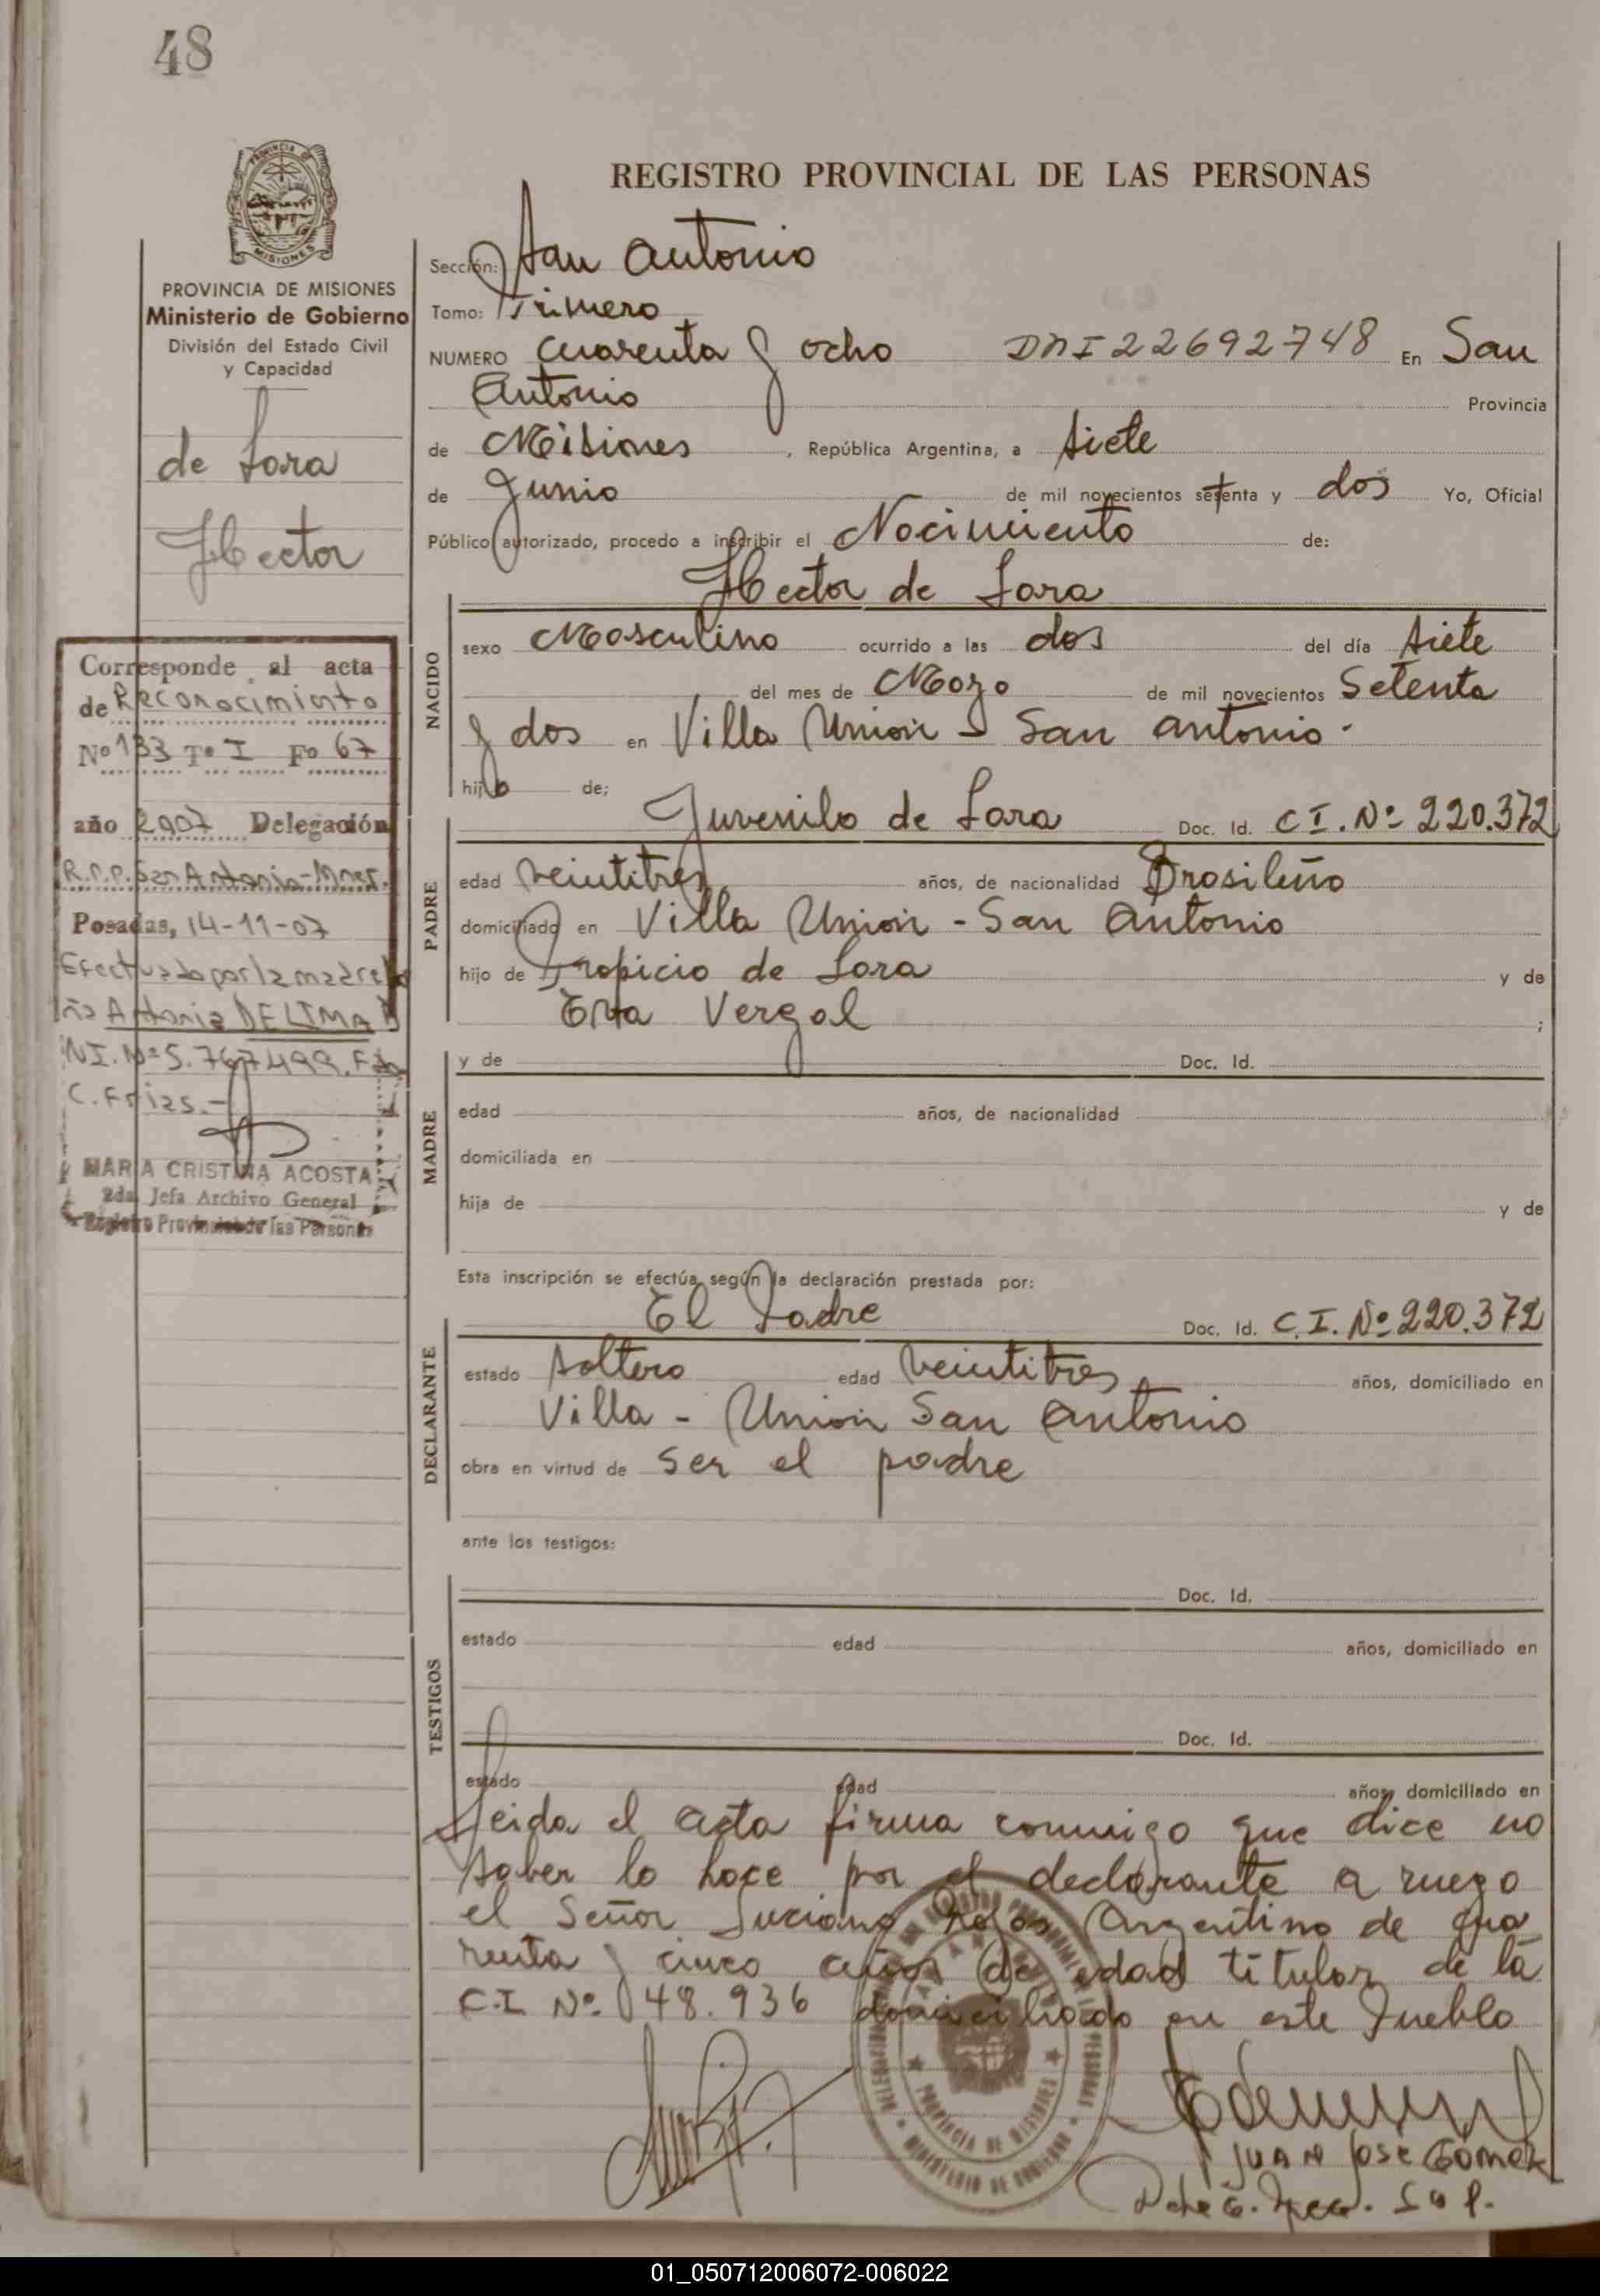 48
PROVINCIA DE
MISIONES
REGISTRO PROVINCIAL DE LAS PERSONAS
PROVINCIA DE MISIONES
Ministerio de Gobierno
División del Estado Civil
y Capacidad
de Lara
Hector
Corresponde al acta
de Reconocimiento
Nº 133 Tº I Fº 67
año 2907 Delegación
R.P.P. San Antonio-Mnes.
Posadas, 14-11-07
Efectuado por la madre
Antonia DE LIMA
Nº 5.767.499.
C. Frias.-
MARIA CRISTINA ACOSTA
2da. Jefa Archivo General
Registro Provincial de las Personas
Sección: San Antonio
Tomo: Primero
NUMERO Cuarenta y ocho DNI 22692748 En San
Antonio Provincia
de Misiones, República Argentina, a siete
de Junio de mil novecientos setenta y dos Yo, Oficial
Público autorizado, procedo a inscribir el Nacimiento de:
Hector de Lara
NACIDO
sexo Masculino ocurrido a las dos del día siete
del mes de Mazo de mil novecientos Setenta
y dos en Villa Unión - San Antonio-
hijo de;
Juvenilo de Lara Doc. Id. C I. Nº 220.372
PADRE
edad veintitres años, de nacionalidad Brasileño
domiciliado en Villa Unión - San Antonio
hijo de Propicio de Lara y de
Vergal ;
y de Doc. Id.
MADRE
edad años, de nacionalidad
domiciliada en
hija de y de
Esta inscripción se efectúa según la declaración prestada por:
El Padre Doc. Id. C.I. Nº 220.372
DECLARANTE
estado soltero edad veintitres años, domiciliado en
Villa - Unión San Antonio
obra en virtud de ser el padre
ante los testigos:
Doc. Id.
TESTIGOS
estado edad años, domiciliado en
Doc. Id.
estado edad años, domiciliado en
Leida el acta firma conmigo que dice no
saber lo hace por el declarante a ruego
el Señor Luciano Rojas Argentino de cua
renta y cinco años de edad titular de la
C.I Nº 048.936 domiciliado en este Pueblo
PROVINCIA DE MISIONES
MINISTERIO DE GOBIERNO
JUAN JOSE GOMEZ
01_050712006072-006022